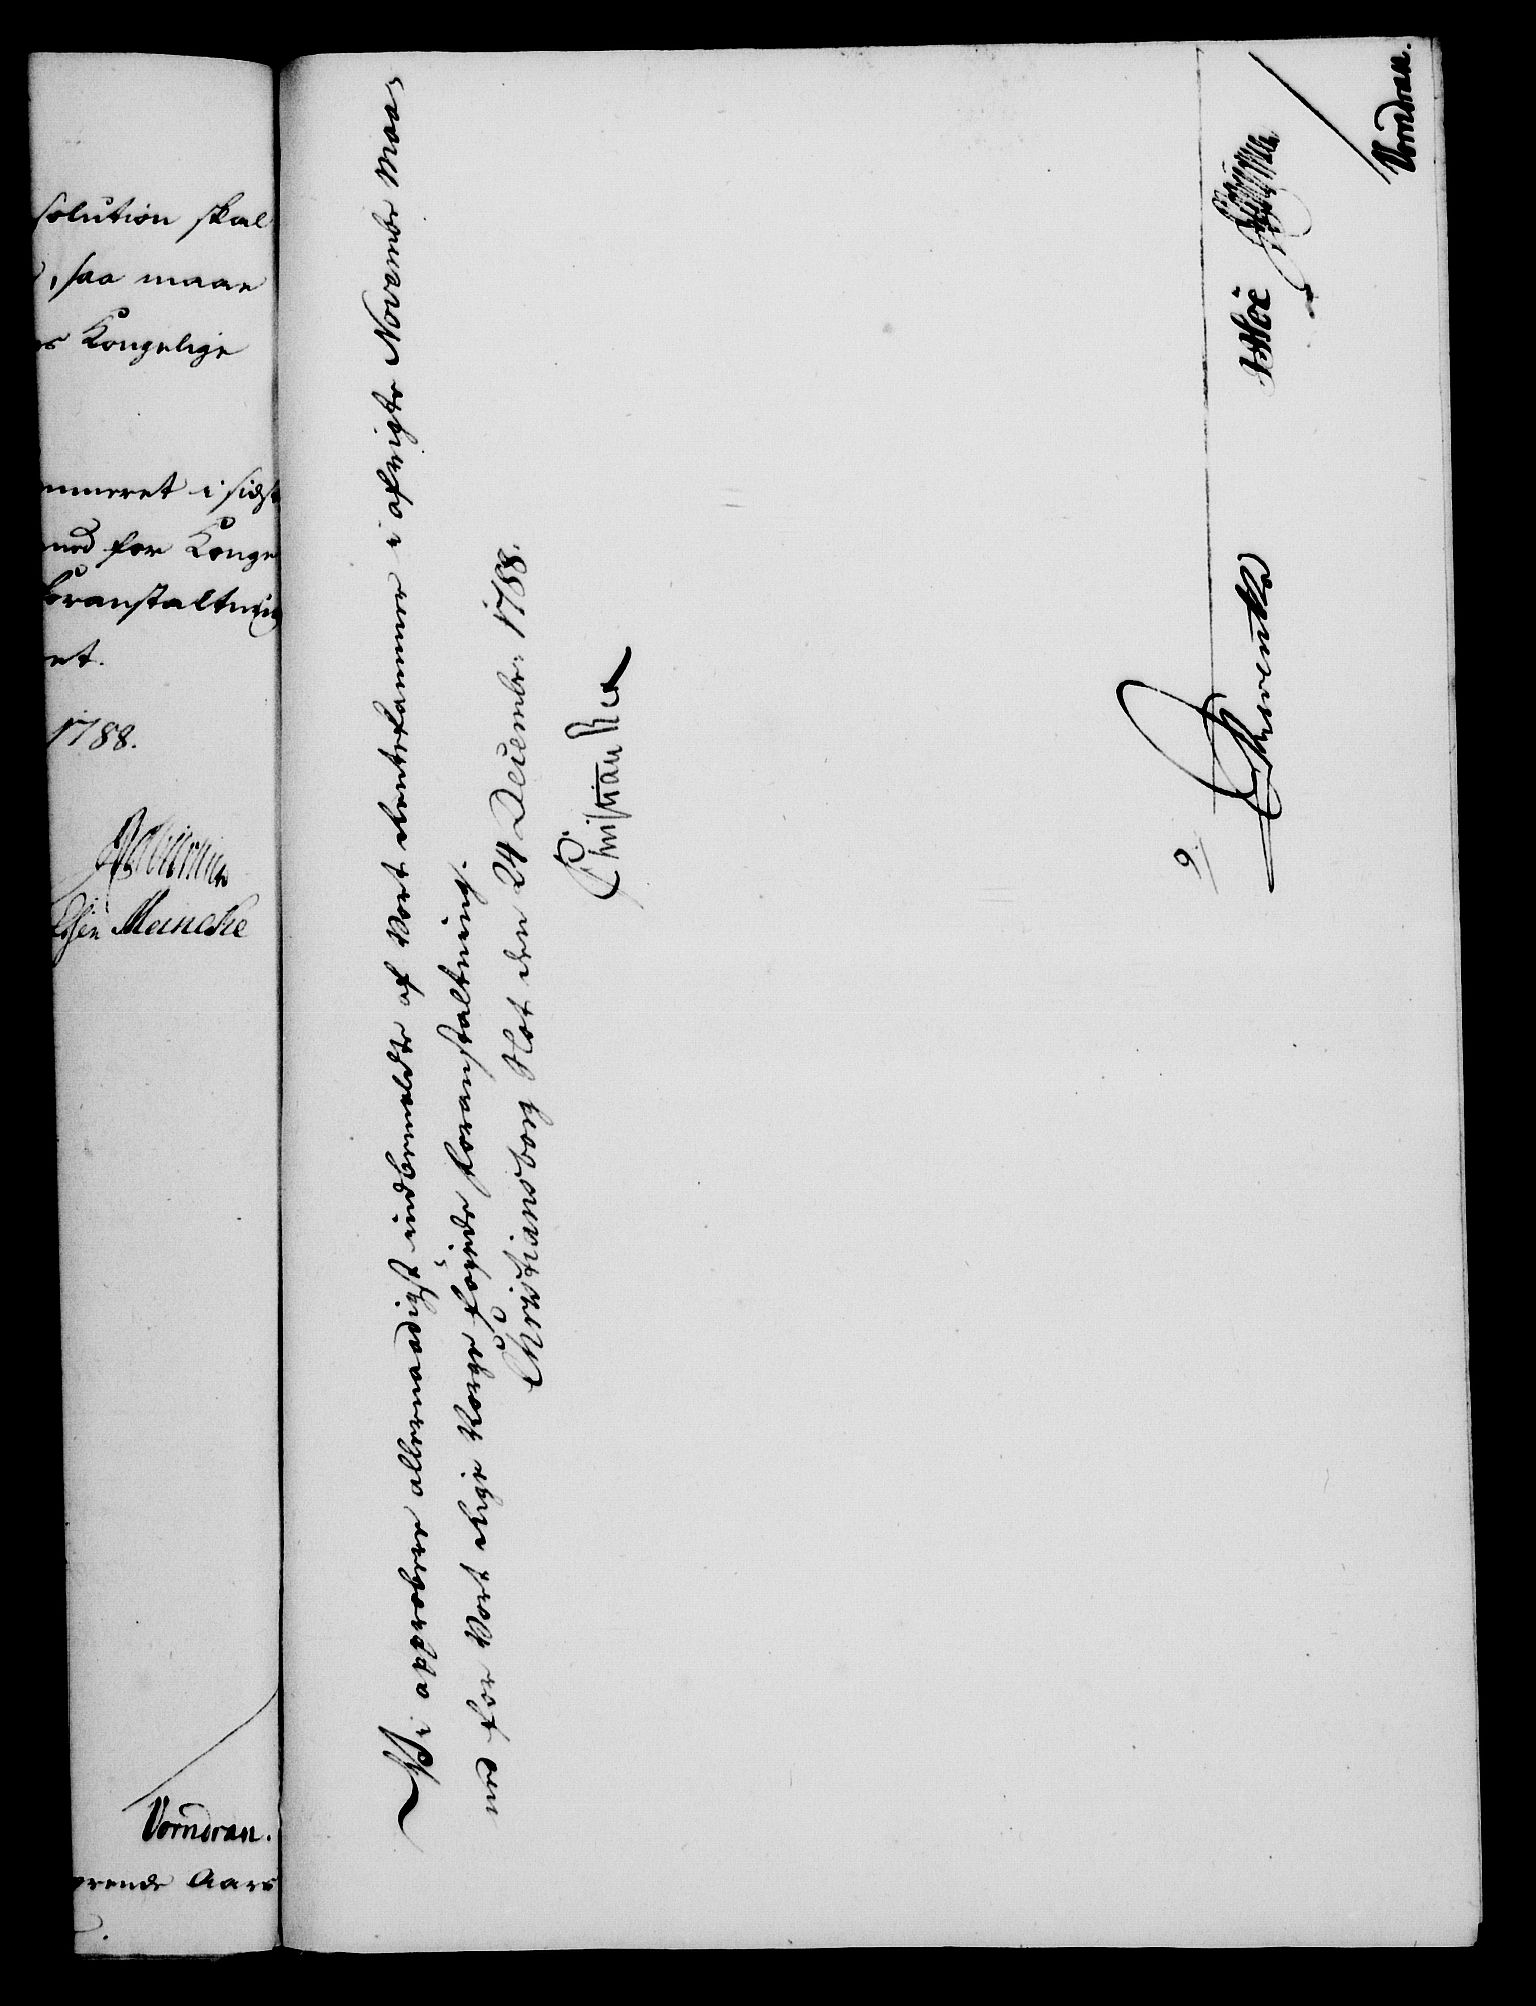 solution skal
, saa maae
Kongelige
mmeret i sidst
ned for Konge
foranstaltning
et.
1788.
Meincke
Vorndran.
erende Aars
Vi approbere allernaadigst indbemeldte af Vort Rentekammer i afvigte November Maa-
ned for Vort Rige Norge føyede Foranstaltning.
Christiansborg Slot den 24 December 1788.
Christian R
9.
Vorndran.